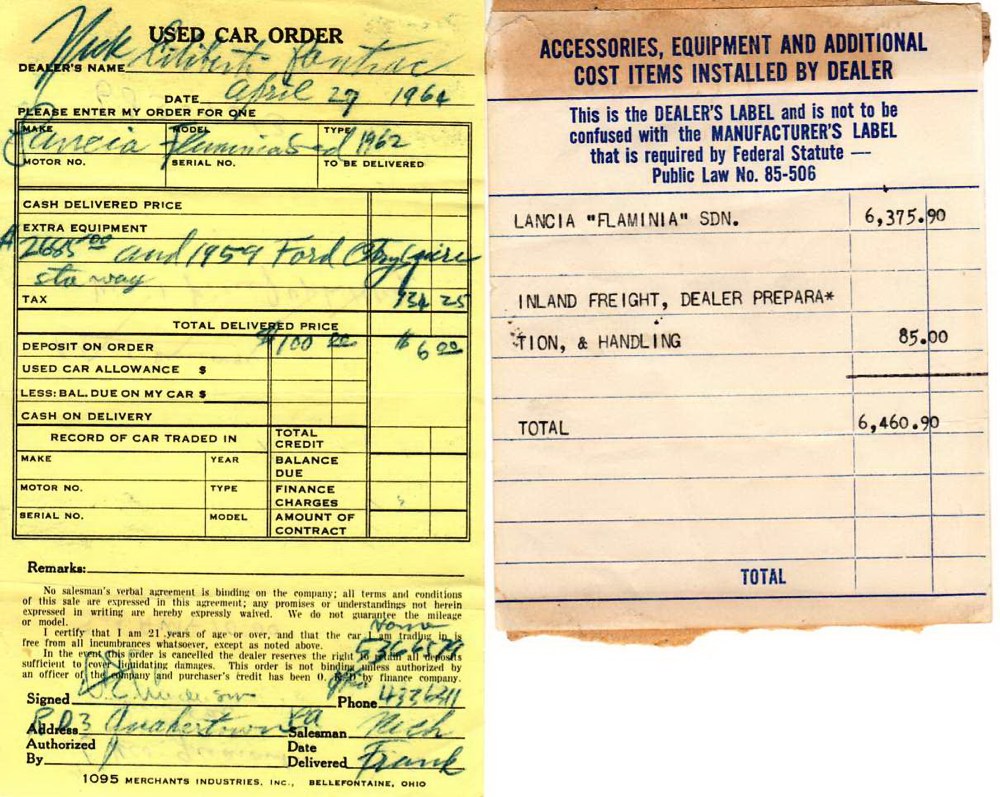 USED CAR ORDER
DEALER'S NAME Nick Ciliberti Pontiac
DATE April 27 1964
PLEASE ENTER MY ORDER FOR ONE
MAKE MODEL TYPE
Lancia Flaminia Sed 1962
MOTOR NO. SERIAL NO. TO BE DELIVERED
CASH DELIVERED PRICE
EXTRA EQUIPMENT
2685 00 and 1959 Ford
sta way
TAX 134 25
TOTAL DELIVERED PRICE
DEPOSIT ON ORDER $100 00 $6 00
USED CAR ALLOWANCE $
LESS: BAL. DUE ON MY CAR $
CASH ON DELIVERY
RECORD OF CAR TRADED IN TOTAL CREDIT
MAKE YEAR BALANCE DUE
MOTOR NO. TYPE FINANCE CHARGES
SERIAL NO. MODEL AMOUNT OF CONTRACT
Remarks:
No salesman's verbal agreement is binding on the company; all terms and conditions
of this sale are expressed in this agreement; any promises or understandings not herein
expressed in writing are hereby expressly waived. We do not guarantee the mileage
or model.
I certify that I am 21 years of age or over, and that the car I am trading in is
free from all incumbrances whatsoever, except as noted above.
In the event this order is cancelled the dealer reserves the right to retain all deposits
sufficient to cover liquidating damages. This order is not binding unless authorized by
an officer of the company and purchaser's credit has been O. K'D by finance company.
5366579
Signed Phone 4336311
Address RD3 Quakertown Pa Salesman Nick
Authorized Date
By Delivered Frank
1095 MERCHANTS INDUSTRIES, INC., BELLEFONTAINE, OHIO
ACCESSORIES, EQUIPMENT AND ADDITIONAL
COST ITEMS INSTALLED BY DEALER
This is the DEALER'S LABEL and is not to be
confused with the MANUFACTURER'S LABEL
that is required by Federal Statute —
Public Law No. 85-506
LANCIA "FLAMINIA" SDN. 6,375.90
INLAND FREIGHT, DEALER PREPARA*
TION, & HANDLING 85.00
TOTAL 6,460.90
TOTAL